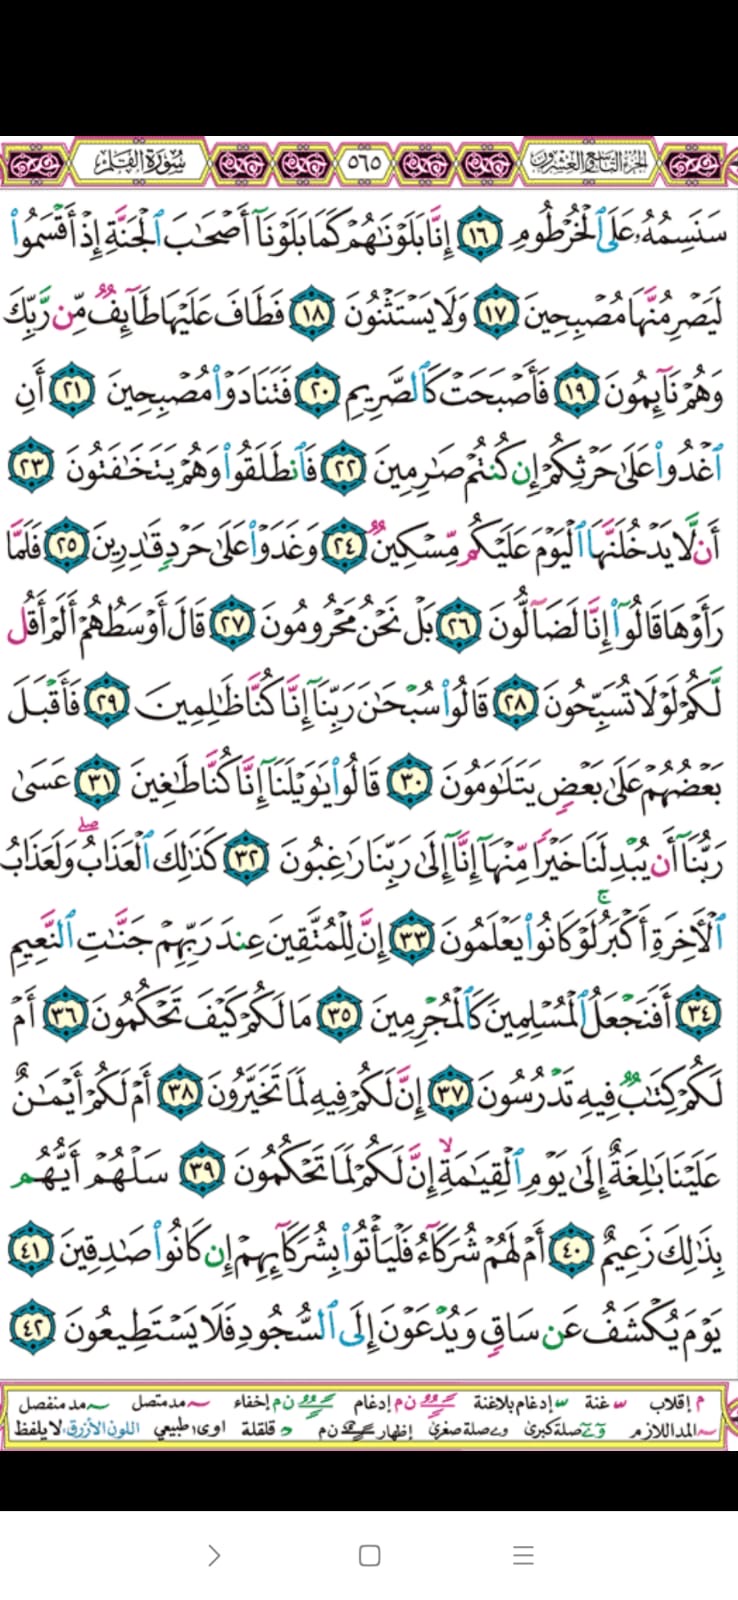 سُورَةُ القَلَمِ ٥٦٥ الجُزْءُ التَّاسِعُ وَالعِشْرُونَ
سَنَسِمُهُۥ عَلَى ٱلْخُرْطُومِ ١٦ إِنَّا بَلَوْنَٰهُمْ كَمَا بَلَوْنَآ أَصْحَٰبَ ٱلْجَنَّةِ إِذْ أَقْسَمُوا۟
لَيَصْرِمُنَّهَا مُصْبِحِينَ ١٧ وَلَا يَسْتَثْنُونَ ١٨ فَطَافَ عَلَيْهَا طَآئِفٌ مِّن رَّبِّكَ
وَهُمْ نَآئِمُونَ ١٩ فَأَصْبَحَتْ كَٱلصَّرِيمِ ٢٠ فَتَنَادَوْا۟ مُصْبِحِينَ ٢١ أَنِ
ٱغْدُوا۟ عَلَىٰ حَرْثِكُمْ إِن كُنتُمْ صَٰرِمِينَ ٢٢ فَٱنطَلَقُوا۟ وَهُمْ يَتَخَٰفَتُونَ ٢٣
أَن لَّا يَدْخُلَنَّهَا ٱلْيَوْمَ عَلَيْكُم مِّسْكِينٌ ٢٤ وَغَدَوْا۟ عَلَىٰ حَرْدٍ قَٰدِرِينَ ٢٥ فَلَمَّا
رَأَوْهَا قَالُوٓا۟ إِنَّا لَضَآلُّونَ ٢٦ بَلْ نَحْنُ مَحْرُومُونَ ٢٧ قَالَ أَوْسَطُهُمْ أَلَمْ أَقُل
لَّكُمْ لَوْلَا تُسَبِّحُونَ ٢٨ قَالُوا۟ سُبْحَٰنَ رَبِّنَآ إِنَّا كُنَّا ظَٰلِمِينَ ٢٩ فَأَقْبَلَ
بَعْضُهُمْ عَلَىٰ بَعْضٍ يَتَلَٰوَمُونَ ٣٠ قَالُوا۟ يَٰوَيْلَنَآ إِنَّا كُنَّا طَٰغِينَ ٣١ عَسَىٰ
رَبُّنَآ أَن يُبْدِلَنَا خَيْرًا مِّنْهَآ إِنَّآ إِلَىٰ رَبِّنَا رَٰغِبُونَ ٣٢ كَذَٰلِكَ ٱلْعَذَابُ ۖ وَلَعَذَابُ
ٱلْءَاخِرَةِ أَكْبَرُ ۚ لَوْ كَانُوا۟ يَعْلَمُونَ ٣٣ إِنَّ لِلْمُتَّقِينَ عِندَ رَبِّهِمْ جَنَّٰتِ ٱلنَّعِيمِ
٣٤ أَفَنَجْعَلُ ٱلْمُسْلِمِينَ كَٱلْمُجْرِمِينَ ٣٥ مَا لَكُمْ كَيْفَ تَحْكُمُونَ ٣٦ أَمْ
لَكُمْ كِتَٰبٌ فِيهِ تَدْرُسُونَ ٣٧ إِنَّ لَكُمْ فِيهِ لَمَا تَخَيَّرُونَ ٣٨ أَمْ لَكُمْ أَيْمَٰنٌ
عَلَيْنَا بَٰلِغَةٌ إِلَىٰ يَوْمِ ٱلْقِيَٰمَةِ ۙ إِنَّ لَكُمْ لَمَا تَحْكُمُونَ ٣٩ سَلْهُمْ أَيُّهُم
بِذَٰلِكَ زَعِيمٌ ٤٠ أَمْ لَهُمْ شُرَكَآءُ فَلْيَأْتُوا۟ بِشُرَكَآئِهِمْ إِن كَانُوا۟ صَٰدِقِينَ ٤١
يَوْمَ يُكْشَفُ عَن سَاقٍ وَيُدْعَوْنَ إِلَى ٱلسُّجُودِ فَلَا يَسْتَطِيعُونَ ٤٢
م إقلاب غنة إدغام بلاغنة ن م إدغام ن م إخفاء مد متصل مد منفصل
المد اللازم صلة كبرى صلة صغرى إظهار ن م قلقلة اوى طبيعي اللون الأزرق لا يلفظ